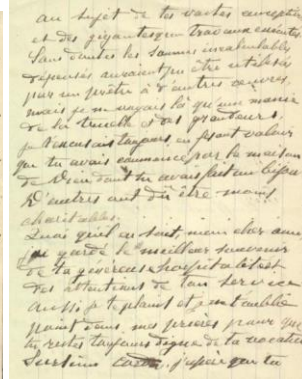 au sujet de tes vastes conceptions
et des gigantesques travaux exécutés
Sans doutes les sommes incalculables
dépensées auraient pu être utilisées
par un prêtre à d'autres œuvres,
mais je ne voyais là qu'une manie
de la truelle et des grandeurs.
Je t'excusais toujours, en faisant valoir
que tu avais commencé par la maison
de Dieu dont tu avais fait un bijou
D'autres ont dû être moins
charitables.
Quoi qu'il en soit, mon cher ami
j'ai gardé le meilleur souvenir
de ta généreuse hospitalité et
des attentions de ton service
aussi je te plains et ne t'oublie
point dans mes prières pour que
tu restes toujours digne de ta vocation
j'espère que tu